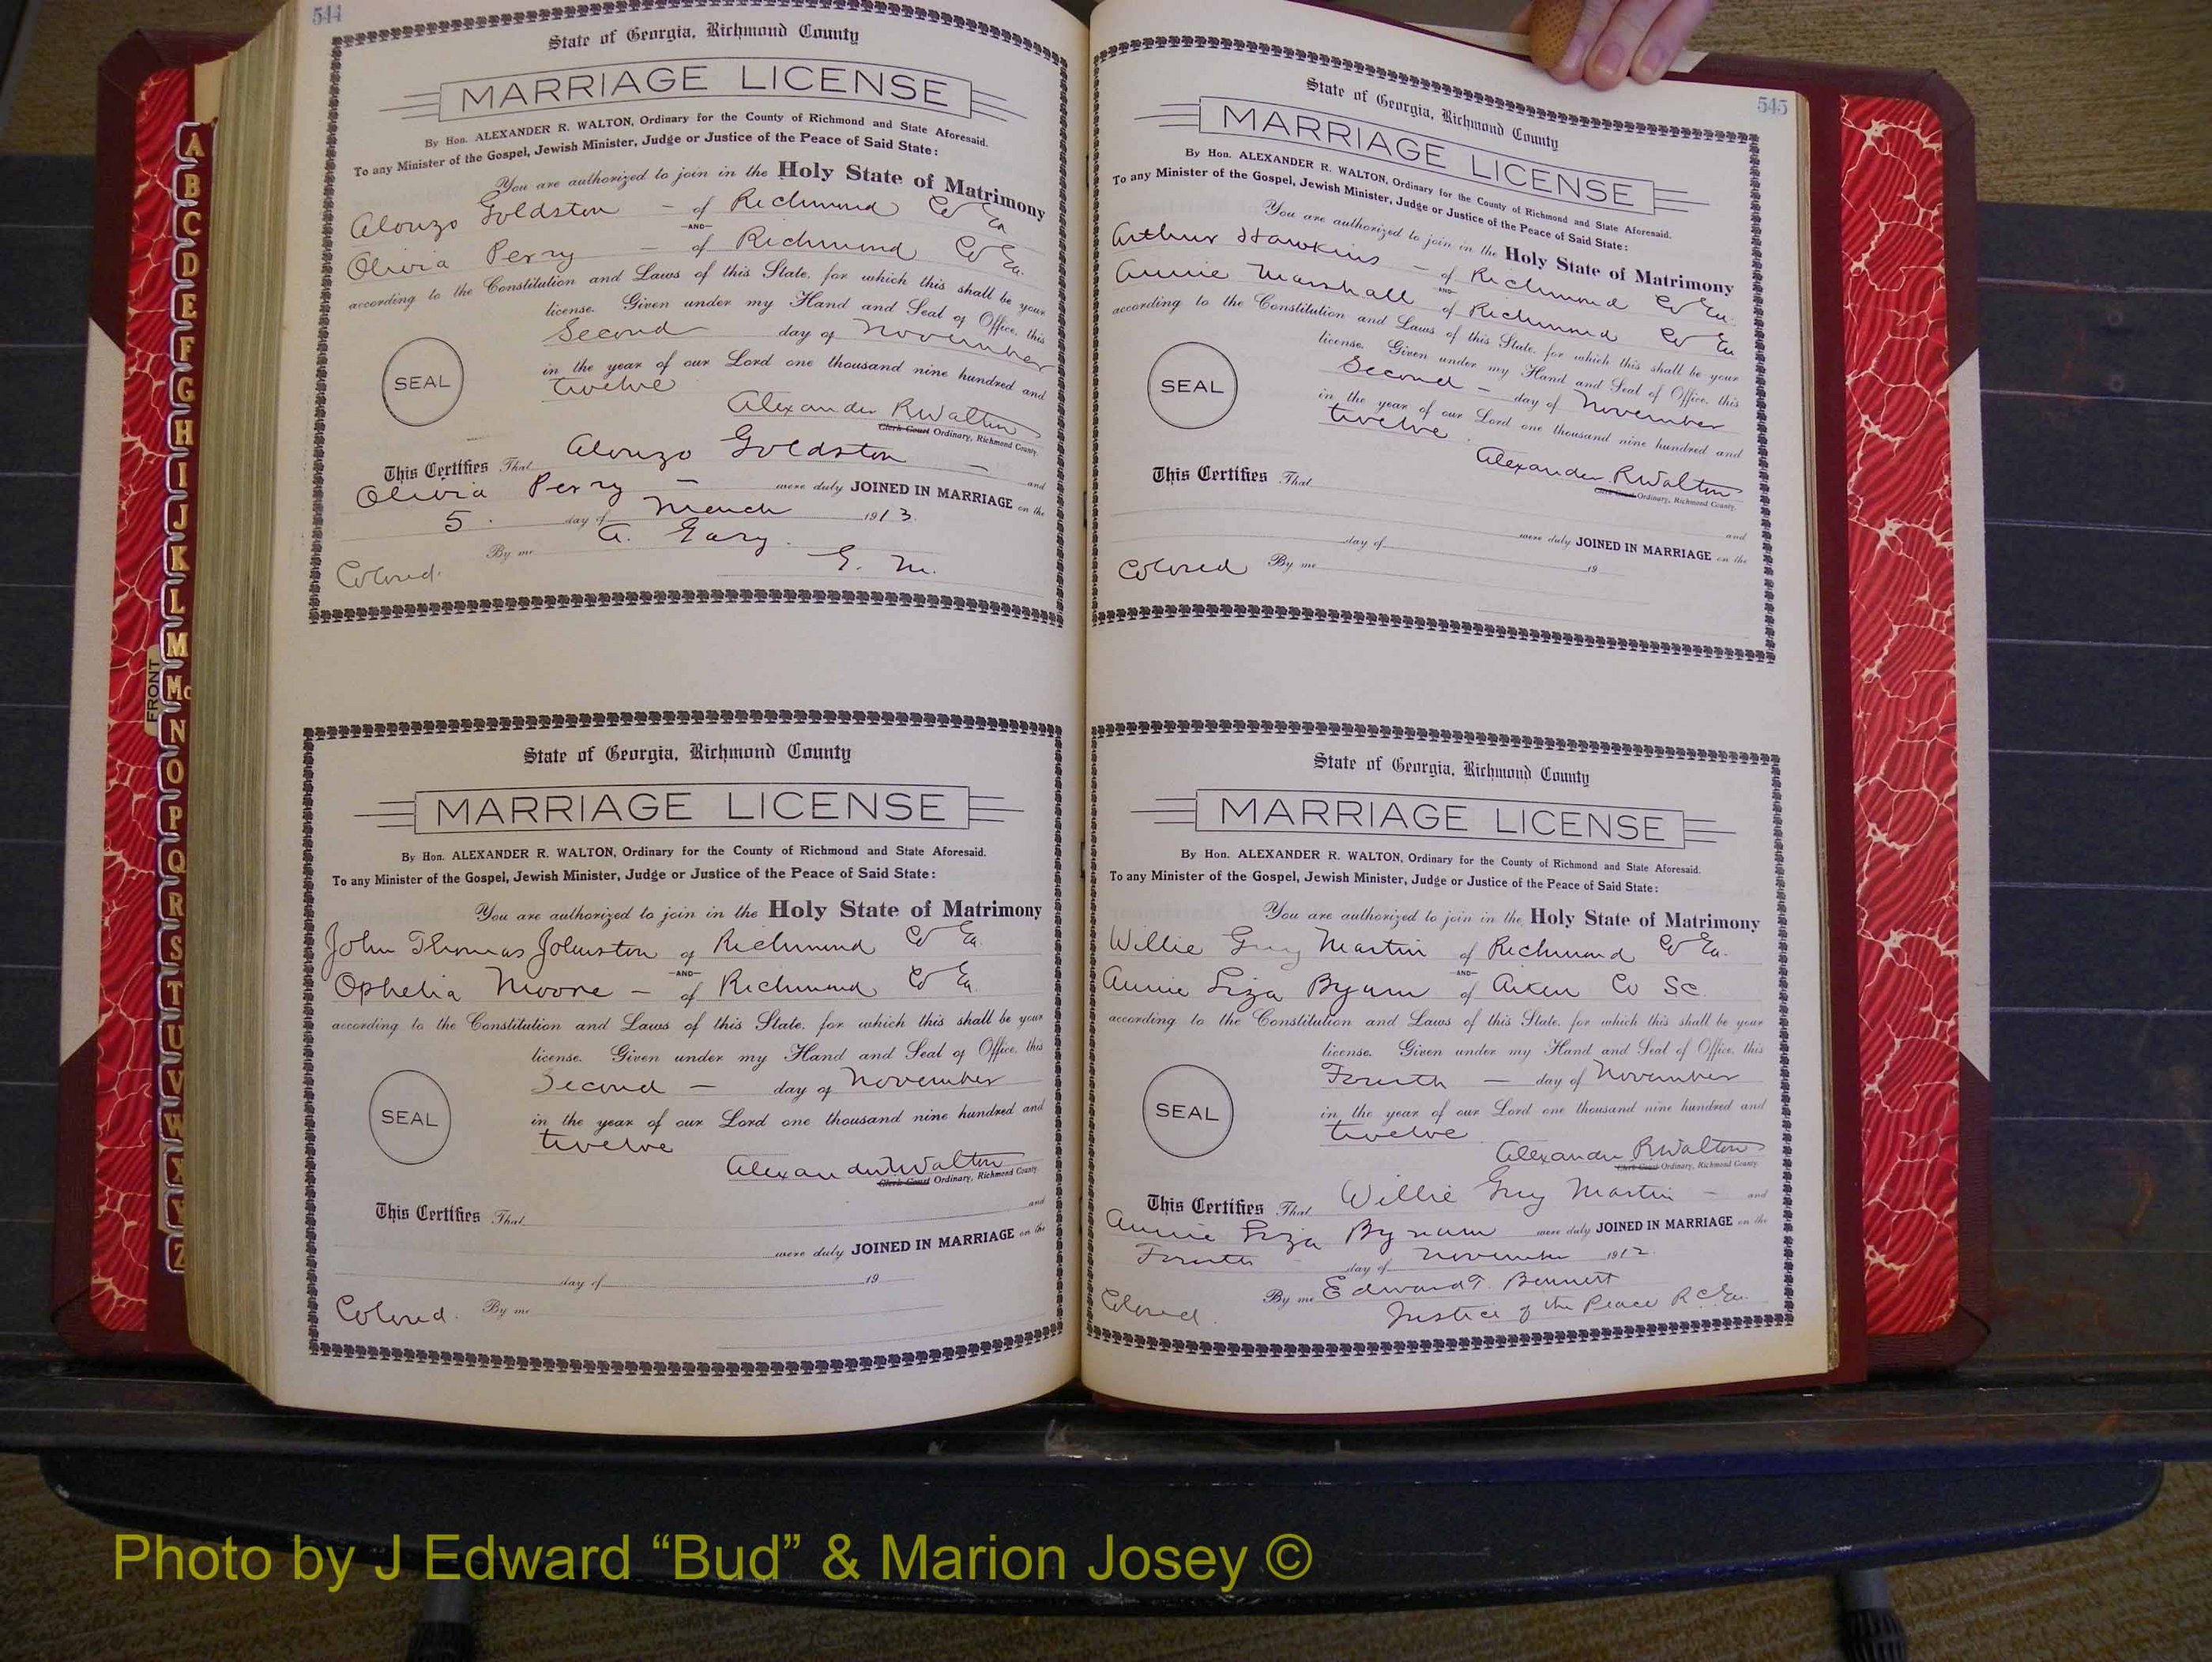 544
State of Georgia, Richmond County
MARRIAGE LICENSE
By Hon. ALEXANDER R. WALTON, Ordinary for the County of Richmond and State Aforesaid.
To any Minister of the Gospel, Jewish Minister, Judge or Justice of the Peace of Said State:
You are authorized to join in the Holy State of Matrimony
Alonzo Goldston - of Richmond Co Ga
AND
Olivia Perry - of Richmond Co Ga.
according to the Constitution and Laws of this State, for which this shall be your
license. Given under my Hand and Seal of Office, this
Second day of November
in the year of our Lord one thousand nine hundred and
twelve
SEAL
Alexander R Walton
Clerk Court Ordinary, Richmond County.
This Certifies That Alonzo Goldston - and
Olivia Perry - were duly JOINED IN MARRIAGE on the
5. day of March 1913.
By me A. Gary.
Colored. G. M.
State of Georgia, Richmond County
MARRIAGE LICENSE
By Hon. ALEXANDER R. WALTON, Ordinary for the County of Richmond and State Aforesaid.
To any Minister of the Gospel, Jewish Minister, Judge or Justice of the Peace of Said State:
You are authorized to join in the Holy State of Matrimony
John Thomas Johnston of Richmond Co Ga.
AND
Ophelia Moore - of Richmond Co Ga.
according to the Constitution and Laws of this State, for which this shall be your
license. Given under my Hand and Seal of Office, this
Second - day of November
in the year of our Lord one thousand nine hundred and
twelve
SEAL
Alexander R Walton
Clerk Court Ordinary, Richmond County.
This Certifies That and
were duly JOINED IN MARRIAGE on the
day of 19
Colored. By me
545
State of Georgia, Richmond County
MARRIAGE LICENSE
By Hon. ALEXANDER R. WALTON, Ordinary for the County of Richmond and State Aforesaid.
To any Minister of the Gospel, Jewish Minister, Judge or Justice of the Peace of Said State:
You are authorized to join in the Holy State of Matrimony
Arthur Hawkins - of Richmond Co Ga.
AND
Annie Marshall of Richmond Co Ga
according to the Constitution and Laws of this State, for which this shall be your
license. Given under my Hand and Seal of Office, this
Second - day of November
in the year of our Lord one thousand nine hundred and
twelve.
SEAL
Alexander R Walton
Clerk Court Ordinary, Richmond County.
This Certifies That
and
were duly JOINED IN MARRIAGE on the
day of 19
Colored By me
State of Georgia, Richmond County
MARRIAGE LICENSE
By Hon. ALEXANDER R. WALTON, Ordinary for the County of Richmond and State Aforesaid.
To any Minister of the Gospel, Jewish Minister, Judge or Justice of the Peace of Said State:
You are authorized to join in the Holy State of Matrimony
Willie Guy Martin of Richmond Co Ga.
AND
Annie Liza Bynum of Aiken Co SC.
according to the Constitution and Laws of this State, for which this shall be your
license. Given under my Hand and Seal of Office, this
Fourth - day of November
in the year of our Lord one thousand nine hundred and
twelve
SEAL
Alexander R Walton
Clerk Court Ordinary, Richmond County.
This Certifies That Willie Guy Martin - and
Annie Liza Bynum were duly JOINED IN MARRIAGE on the
Fourth day of November 1912.
By me Edward T. Bennett
Colored. Justice of the Peace R C Ga.
A
B
C
D
E
F
G
H
I
J
K
L
M
Mc
N
O
P
Q
R
S
T
U
V
W
X
Y
Z
FRONT
Photo by J Edward “Bud” & Marion Josey ©